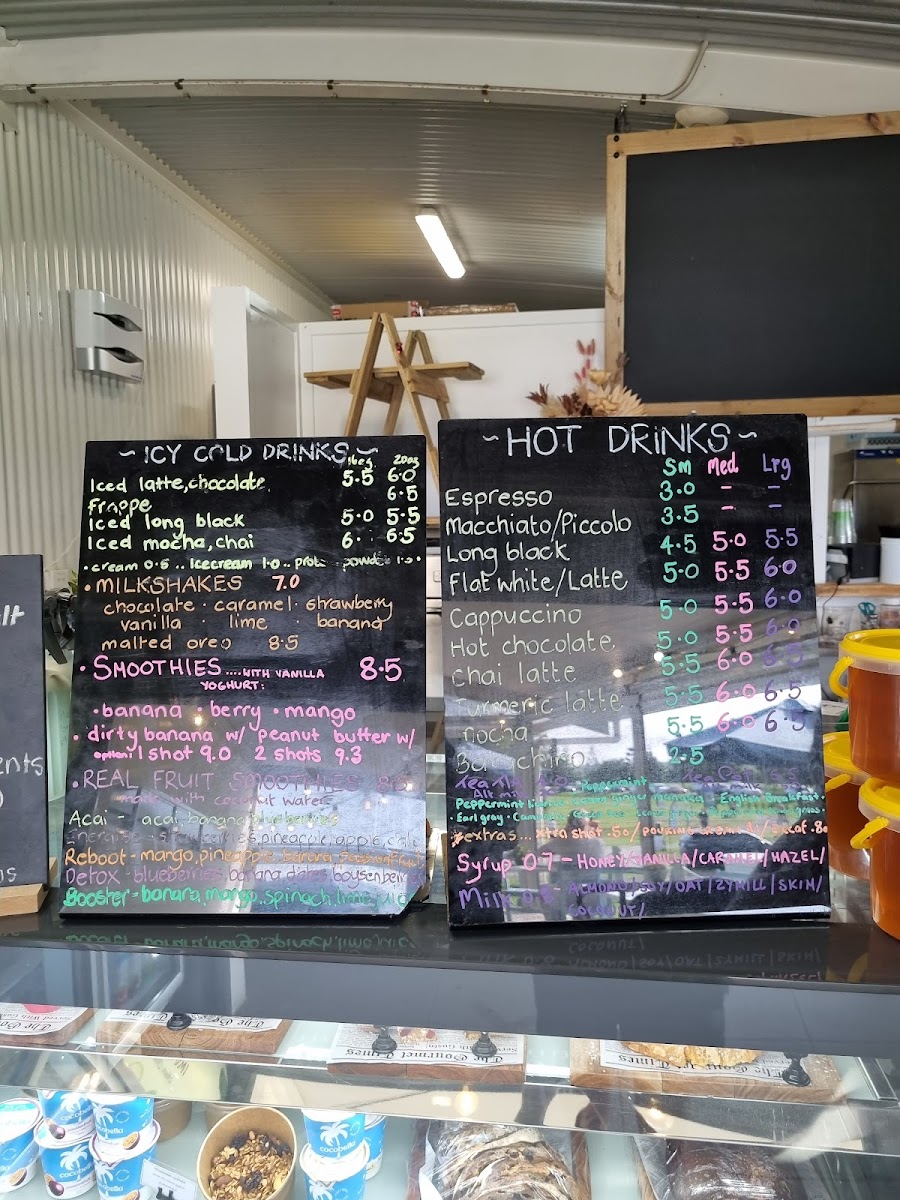 ~ ICY COLD DRINKS ~
20oz
Iced latte, chocolate 5.5 6.0
Frappe 6.5
Iced long black 5.0 5.5
Iced mocha, chai 6. 6.5
• cream 0.5 .. Icecream 1.0 ..
• MILKSHAKES 7.0
chocolate • caramel • strawberry
vanilla • lime • banana
malted oreo 8.5
• SMOOTHIES .... WITH VANILLA 8.5
YOGHURT:
• banana • berry • mango
• dirty banana w/ peanut butter w/
option: 1 shot 9.0 2 shots 9.3
• REAL FRUIT SMOOTHIES 8.5
made with coconut water
Acai - acai, banana, blueberries
Energise - strawberries, pineapple, apple,
Reboot - mango, pineapple, banana,
Detox - blueberries, banana, dates, boysenberries
Booster - banana, mango, spinach, lime, juice
~ HOT DRINKS ~
Sm Med Lrg
Espresso 3.0 - -
Macchiato/Piccolo 3.5 - -
Long black 4.5 5.0 5.5
Flat white/Latte 5.0 5.5 6.0
Cappuccino 5.0 5.5 6.0
Hot chocolate 5.0 5.5 6.0
chai latte 5.5 6.0 6.5
Turmeric latte 5.5 6.0 6.5
mocha 5.5 6.0 6.5
Babychino 2.5
Peppermint
English Breakfast •
• Earl gray •
extras... xtra shot .50/ POURING CREAM
Syrup 0.7 - HONEY/VANILLA/CARAMEL/HAZEL/
Milk 0.8 - ALMOND/SOY/OAT/ZYMILL/SKIN/
COCONUT/
ents
The Gourmet Times
cocobella
cocobella
cocobella